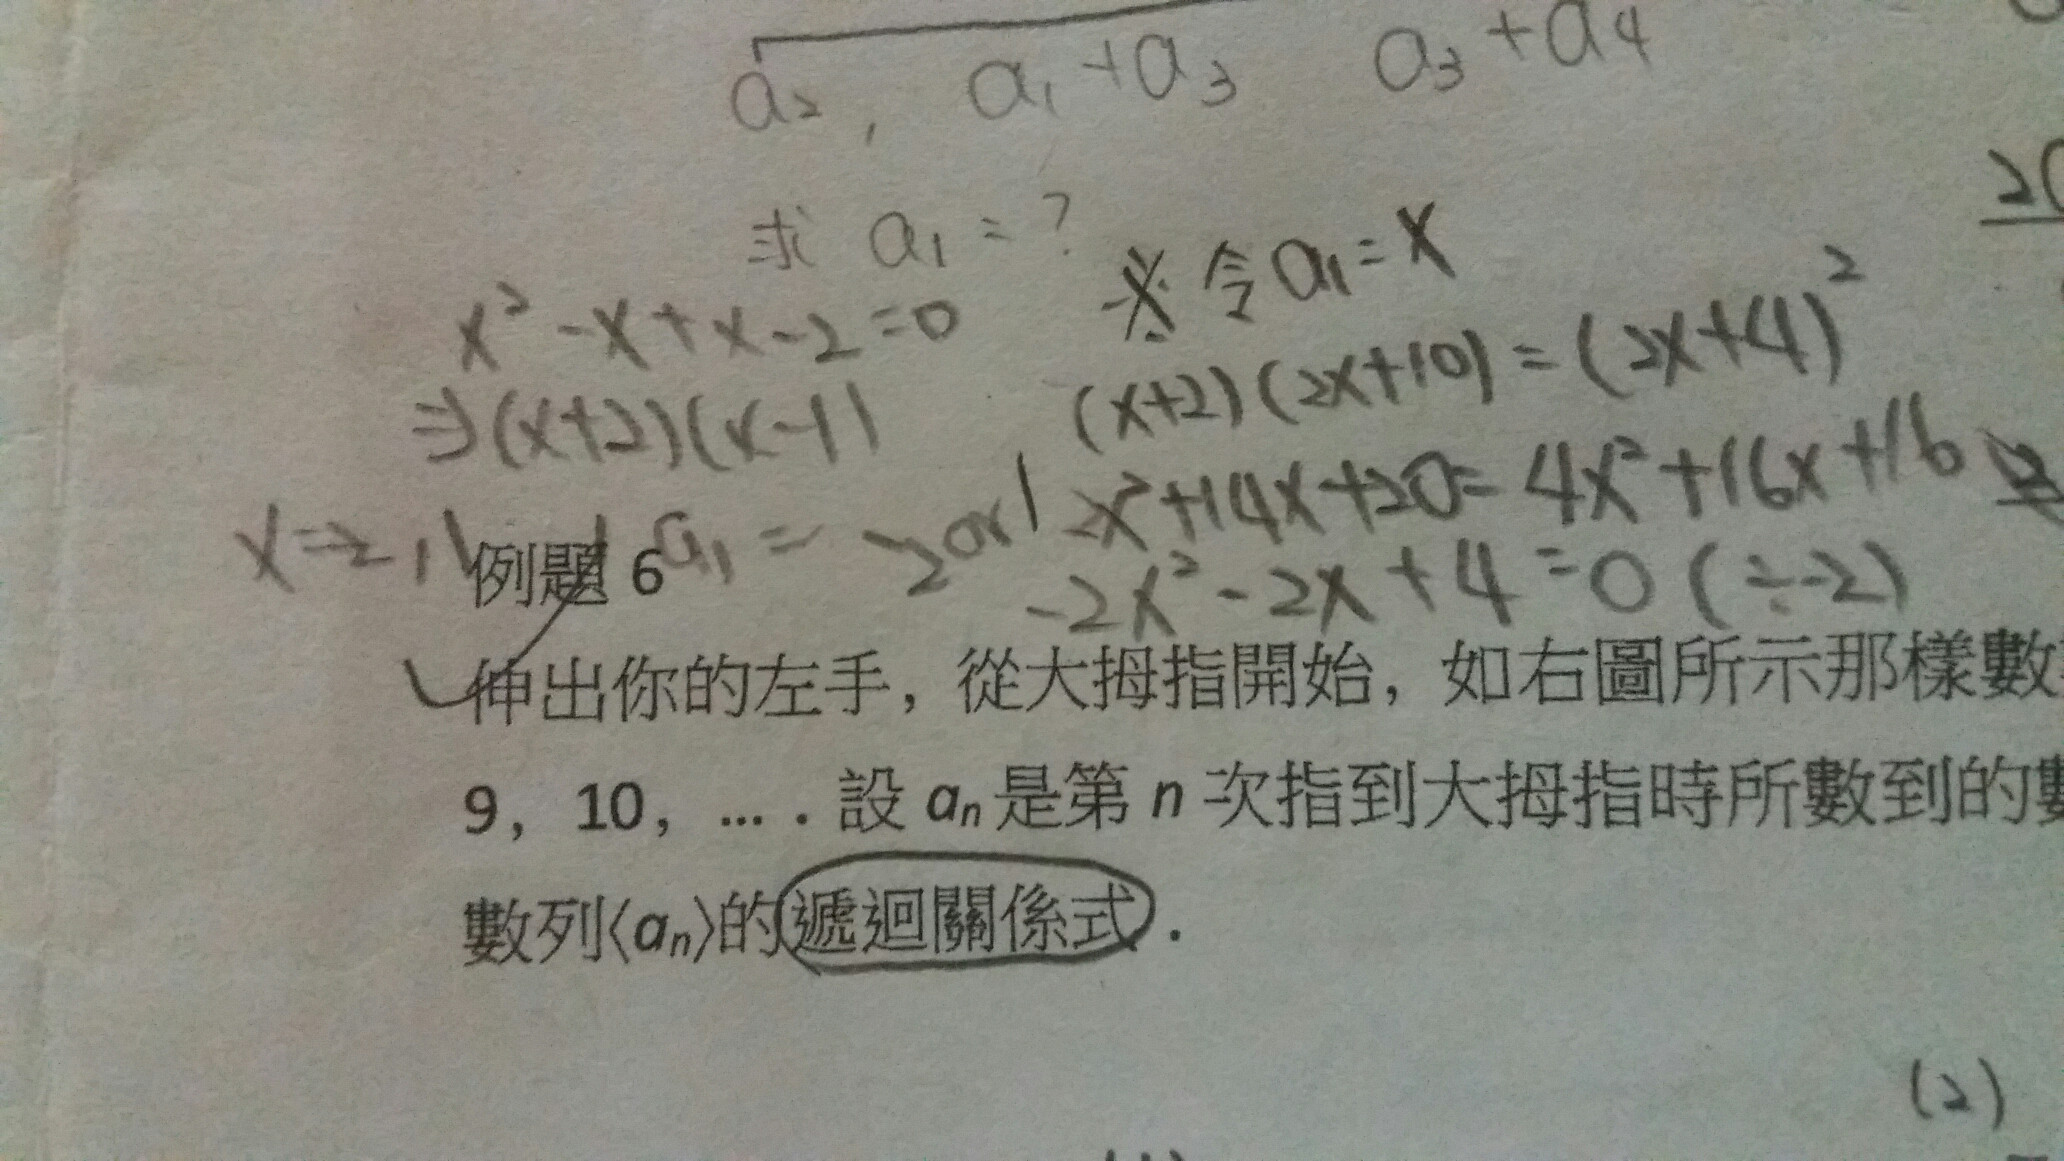 a₂, a₁+a₃ a₃+a₄
20
求 a₁=?
※ 令a₁=x
x²-x+x-2=0
(x+2)(2x+10)=(2x+4)²
⇒(x+2)(x-1)
2x²+14x+20=4x²+16x+16
x=-2,1 a₁=-2or1
-2x²-2x+4=0(÷-2)
例題 6
伸出你的左手，從大拇指開始，如右圖所示那樣數
9，10，…．設 aₙ 是第 n 次指到大拇指時所數到的
數列⟨aₙ⟩的遞迴關係式．
(2)